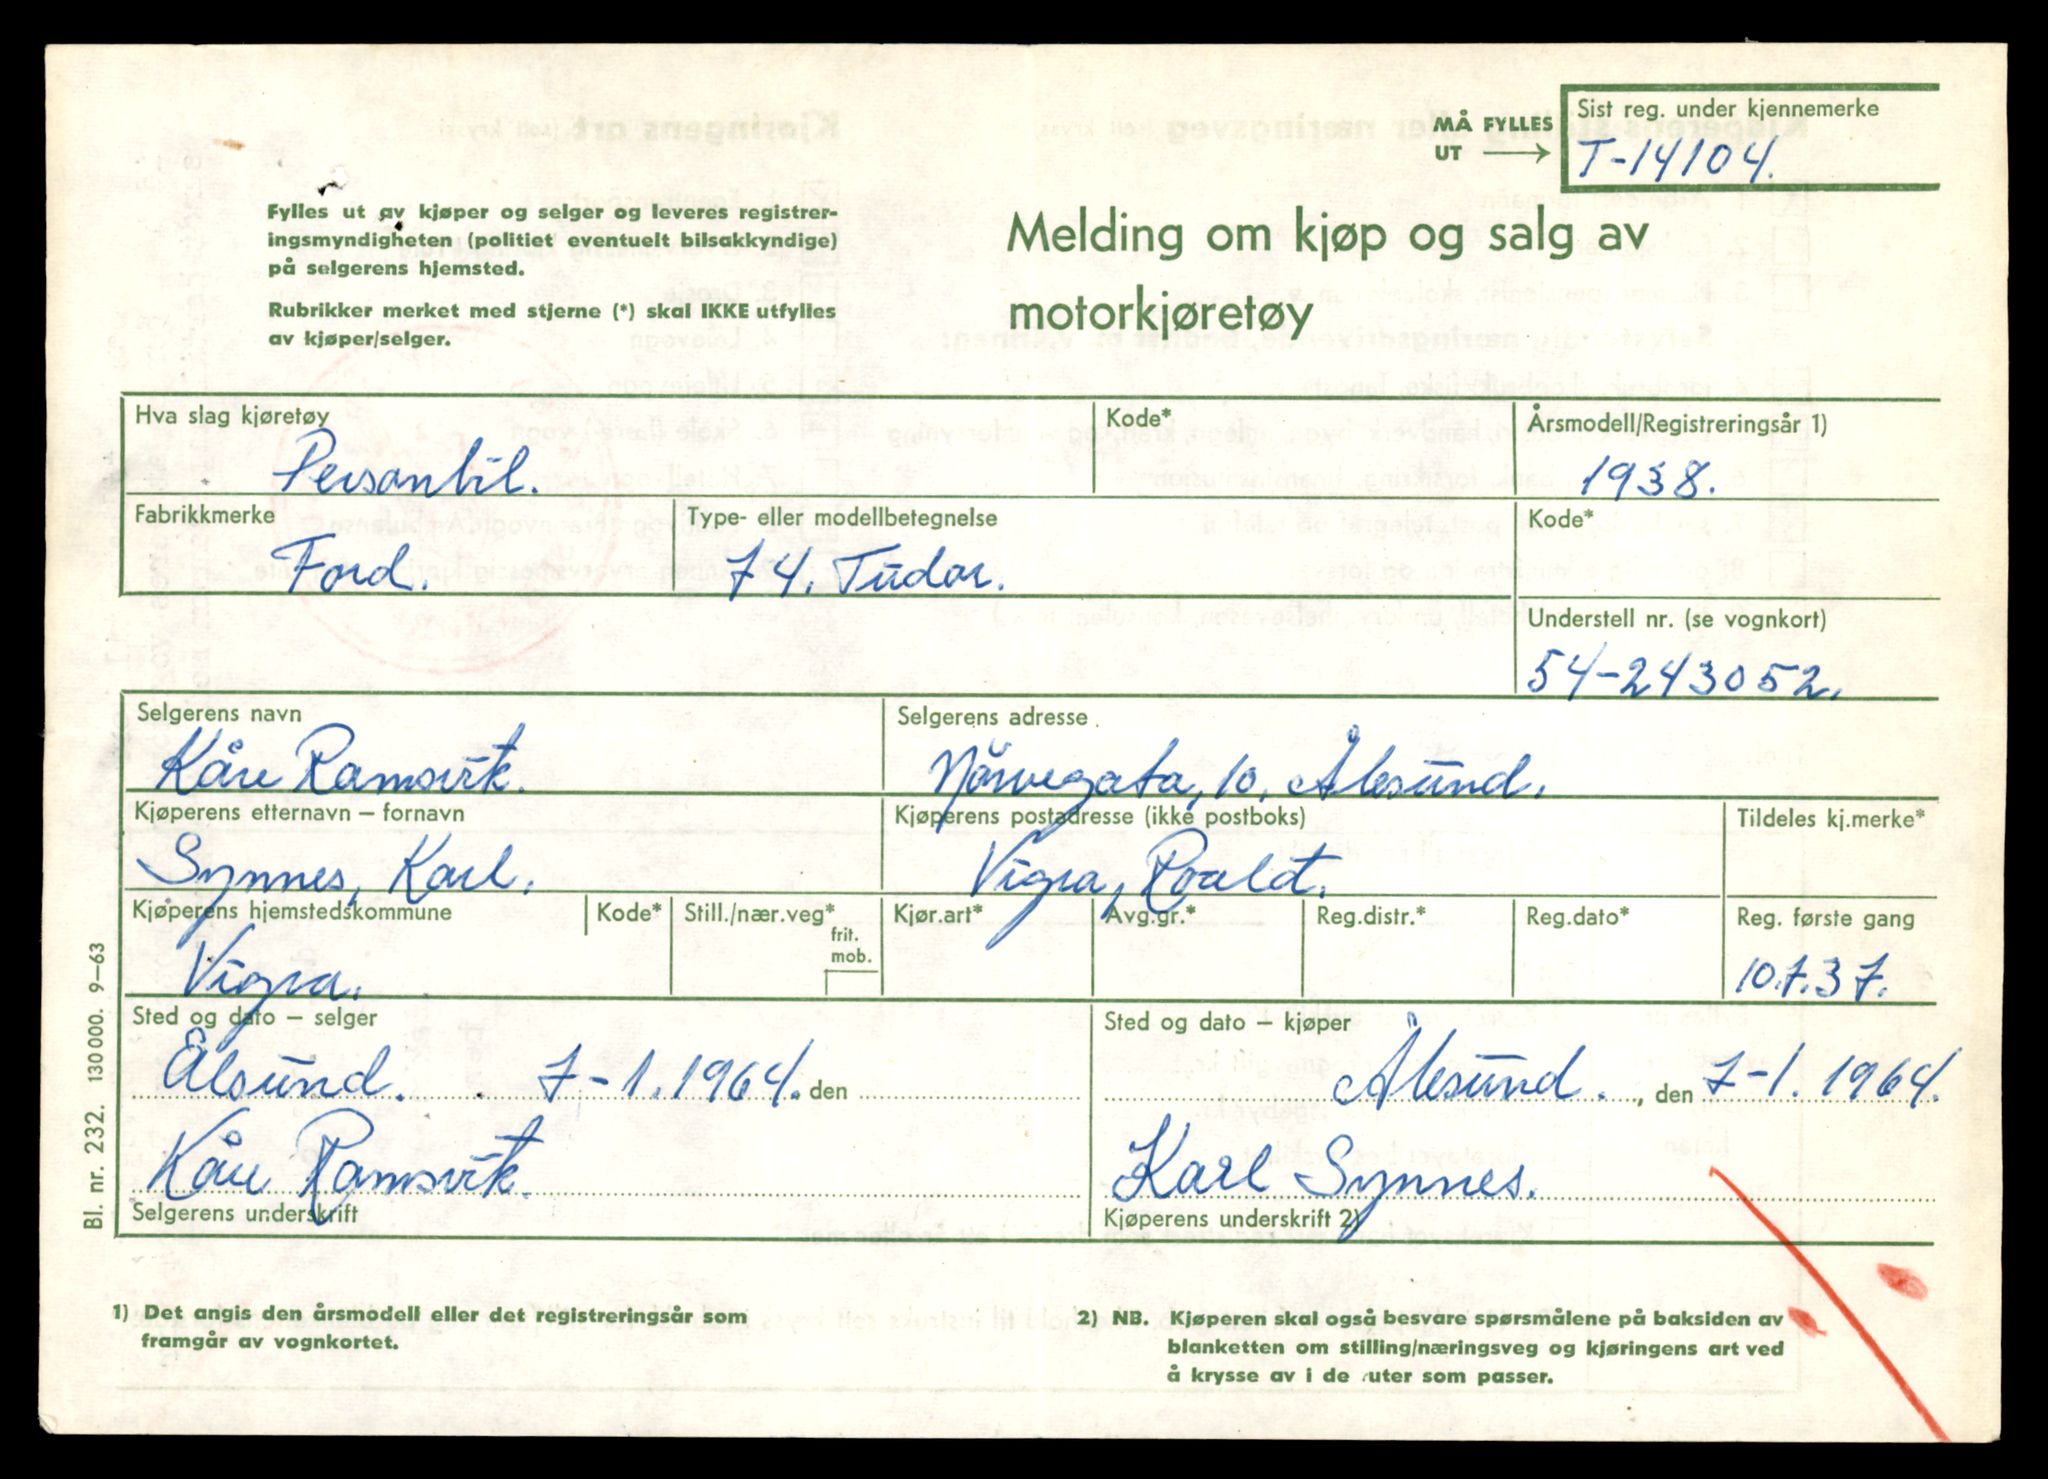 MÅ FYLLES
UT
Sist reg. under kjennemerke
T-14104.
Fylles ut av kjøper og selger og leveres registrer-
ingsmyndigheten (politiet eventuelt bilsakkyndige)
på selgerens hjemsted.
Rubrikker merket med stjerne (*) skal IKKE utfylles
av kjøper/selger.
Melding om kjøp og salg av
motorkjøretøy
Hva slag kjøretøy
Personbil.
Kode*
Årsmodell/Registreringsår 1)
1938.
Fabrikkmerke
Ford.
Type- eller modellbetegnelse
74. Tudor.
Kode*
Understell nr. (se vognkort)
54-243052.
Selgerens navn
Kåre Ramsvik.
Selgerens adresse
Nørvegata, 10, Ålesund.
Kjøperens etternavn – fornavn
Synnes, Karl.
Kjøperens postadresse (ikke postboks)
Vigra, Roald.
Tildeles kj.merke*
Kjøperens hjemstedskommune
Vigra.
Kode*
Still./nær.veg*
frit.
mob.
Kjør.art*
Avg.gr.*
Reg.distr.*
Reg.dato*
Reg. første gang
10.7.37.
Sted og dato – selger
Ålsund. 7-1.1964. den
Kåre Ramsvik.
Selgerens underskrift
Sted og dato – kjøper
Ålesund. , den 7-1. 1964.
Karl Synnes.
Kjøperens underskrift 2)
Bl. nr. 232. 130000. 9–63
1) Det angis den årsmodell eller det registreringsår som
framgår av vognkortet.
2) NB. Kjøperen skal også besvare spørsmålene på baksiden av
blanketten om stilling/næringsveg og kjøringens art ved
å krysse av i de ruter som passer.